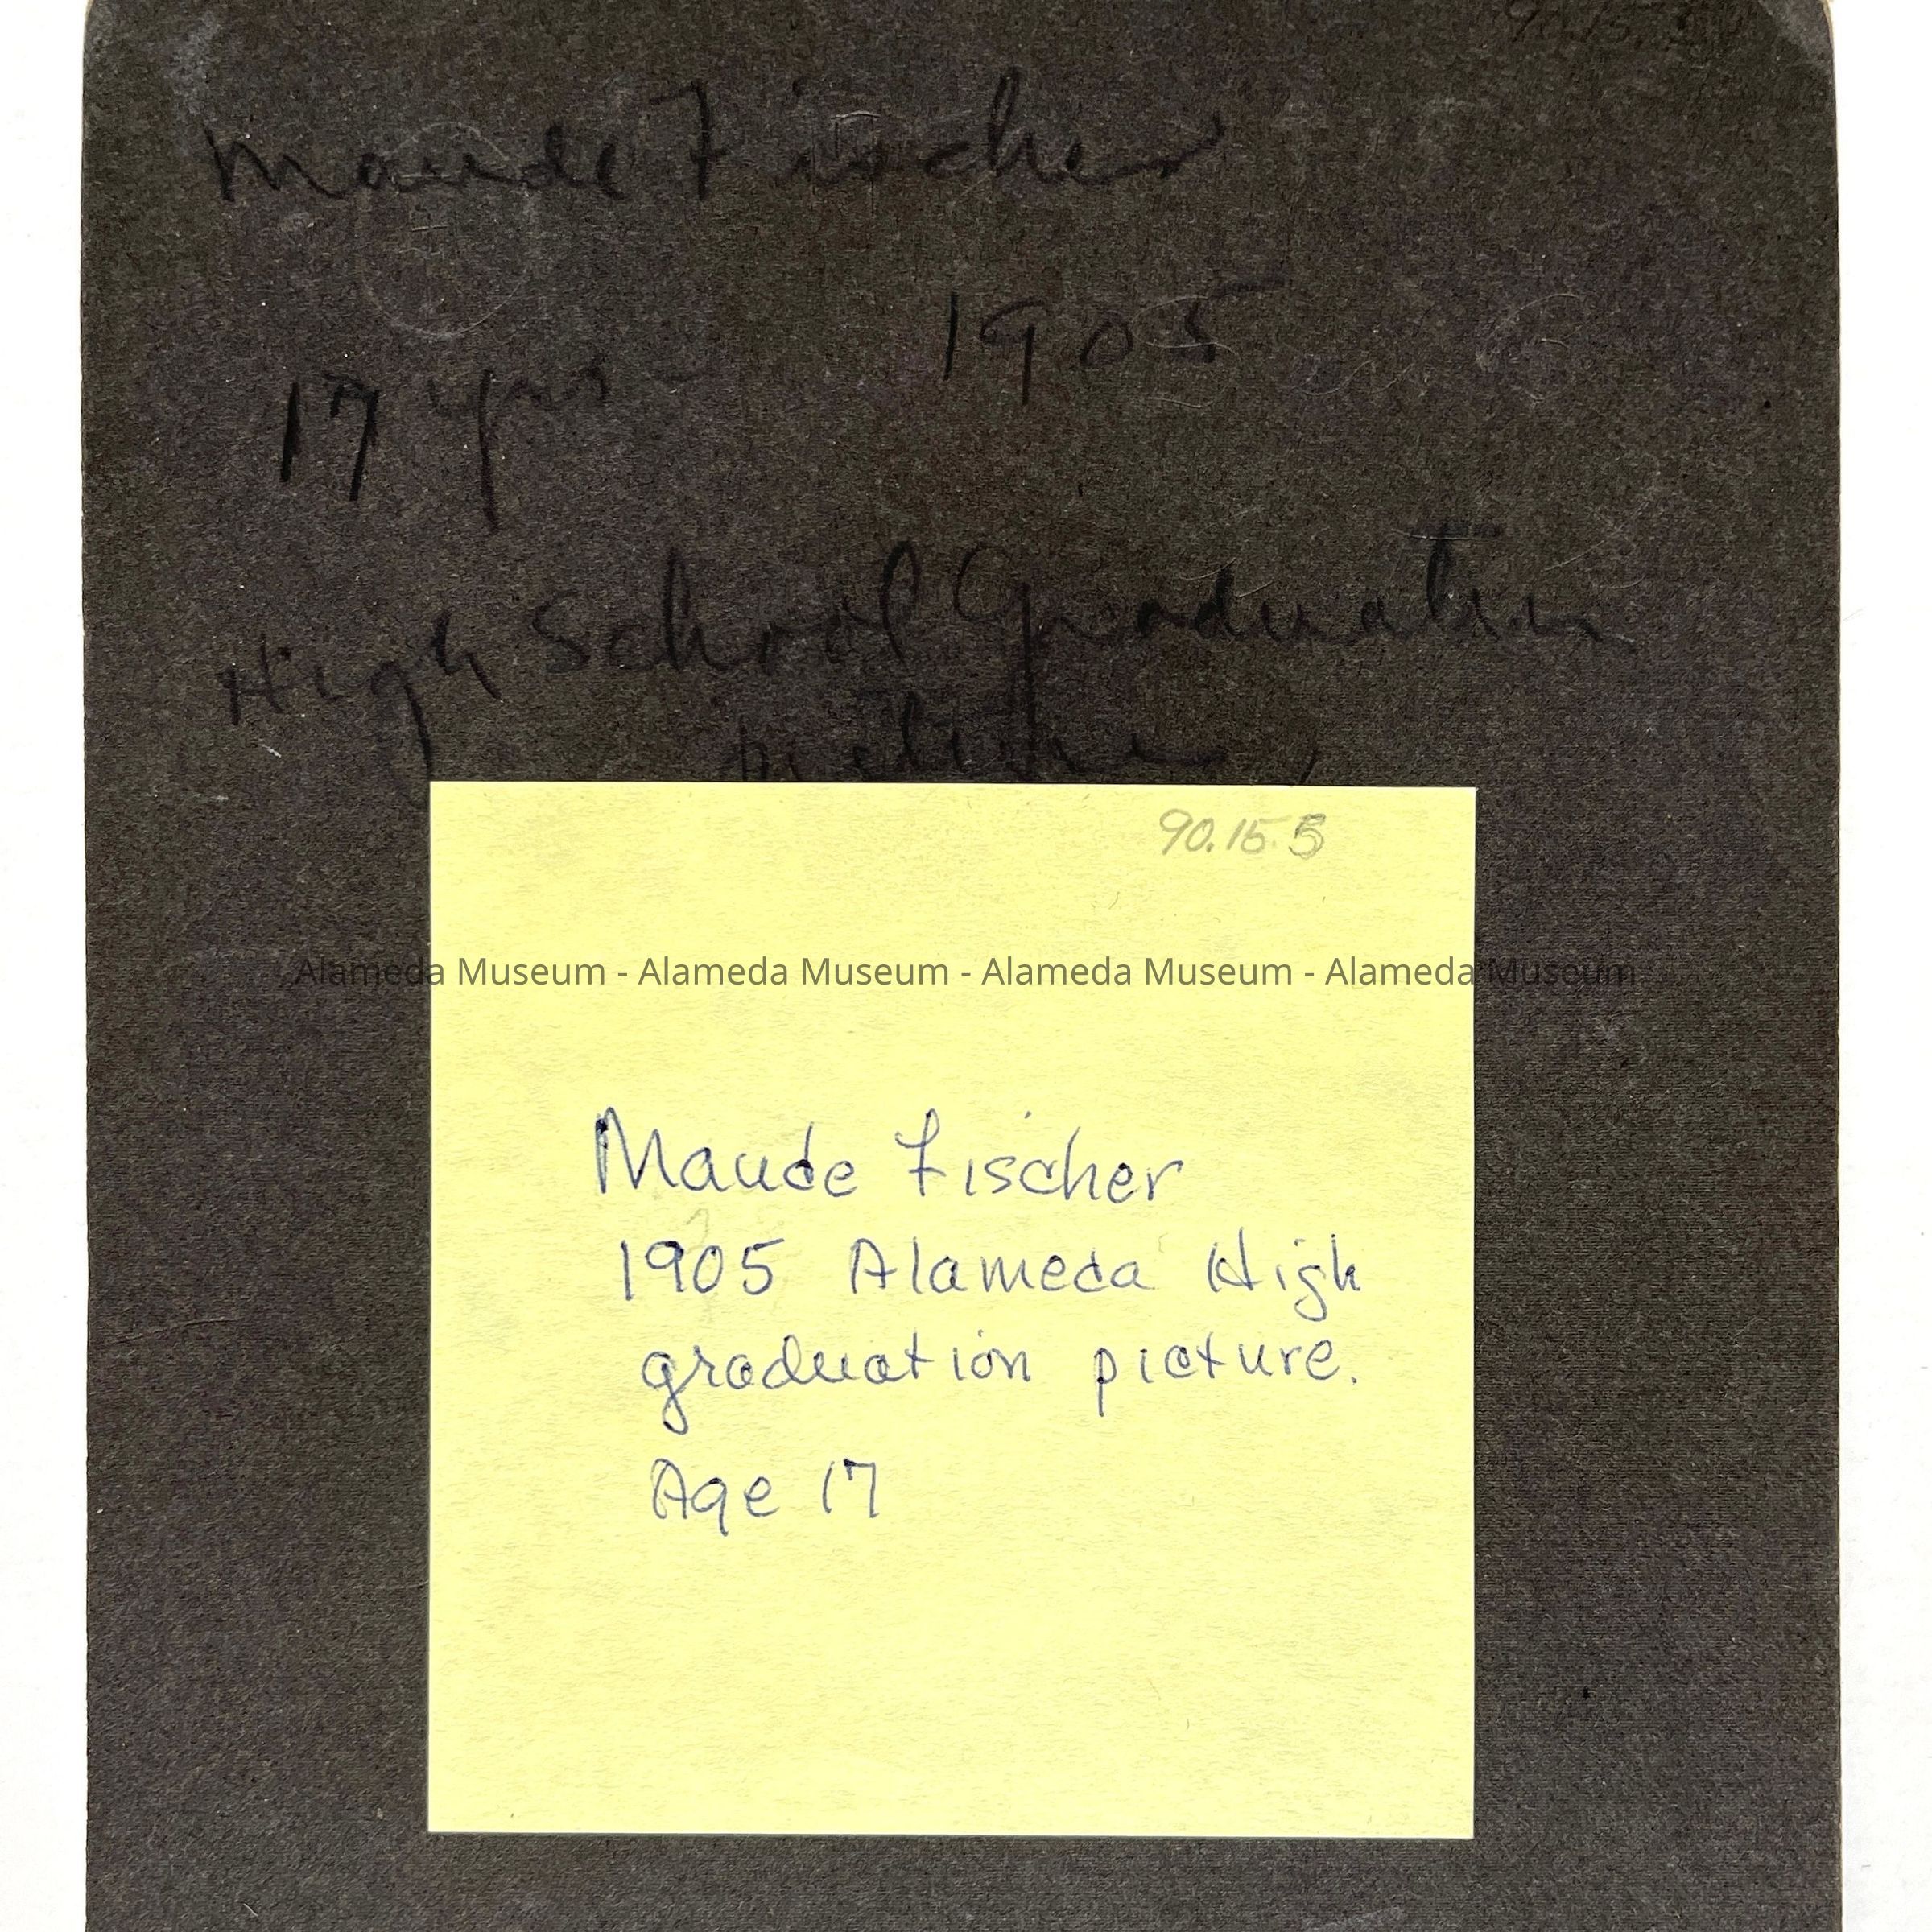 Maude Fischer
1905
17 yrs
High School Graduation
picture
90.15.5
Alameda Museum - Alameda Museum - Alameda Museum - Alameda Museum
Maude Fischer
1905 Alameda High
graduation picture.
Age 17